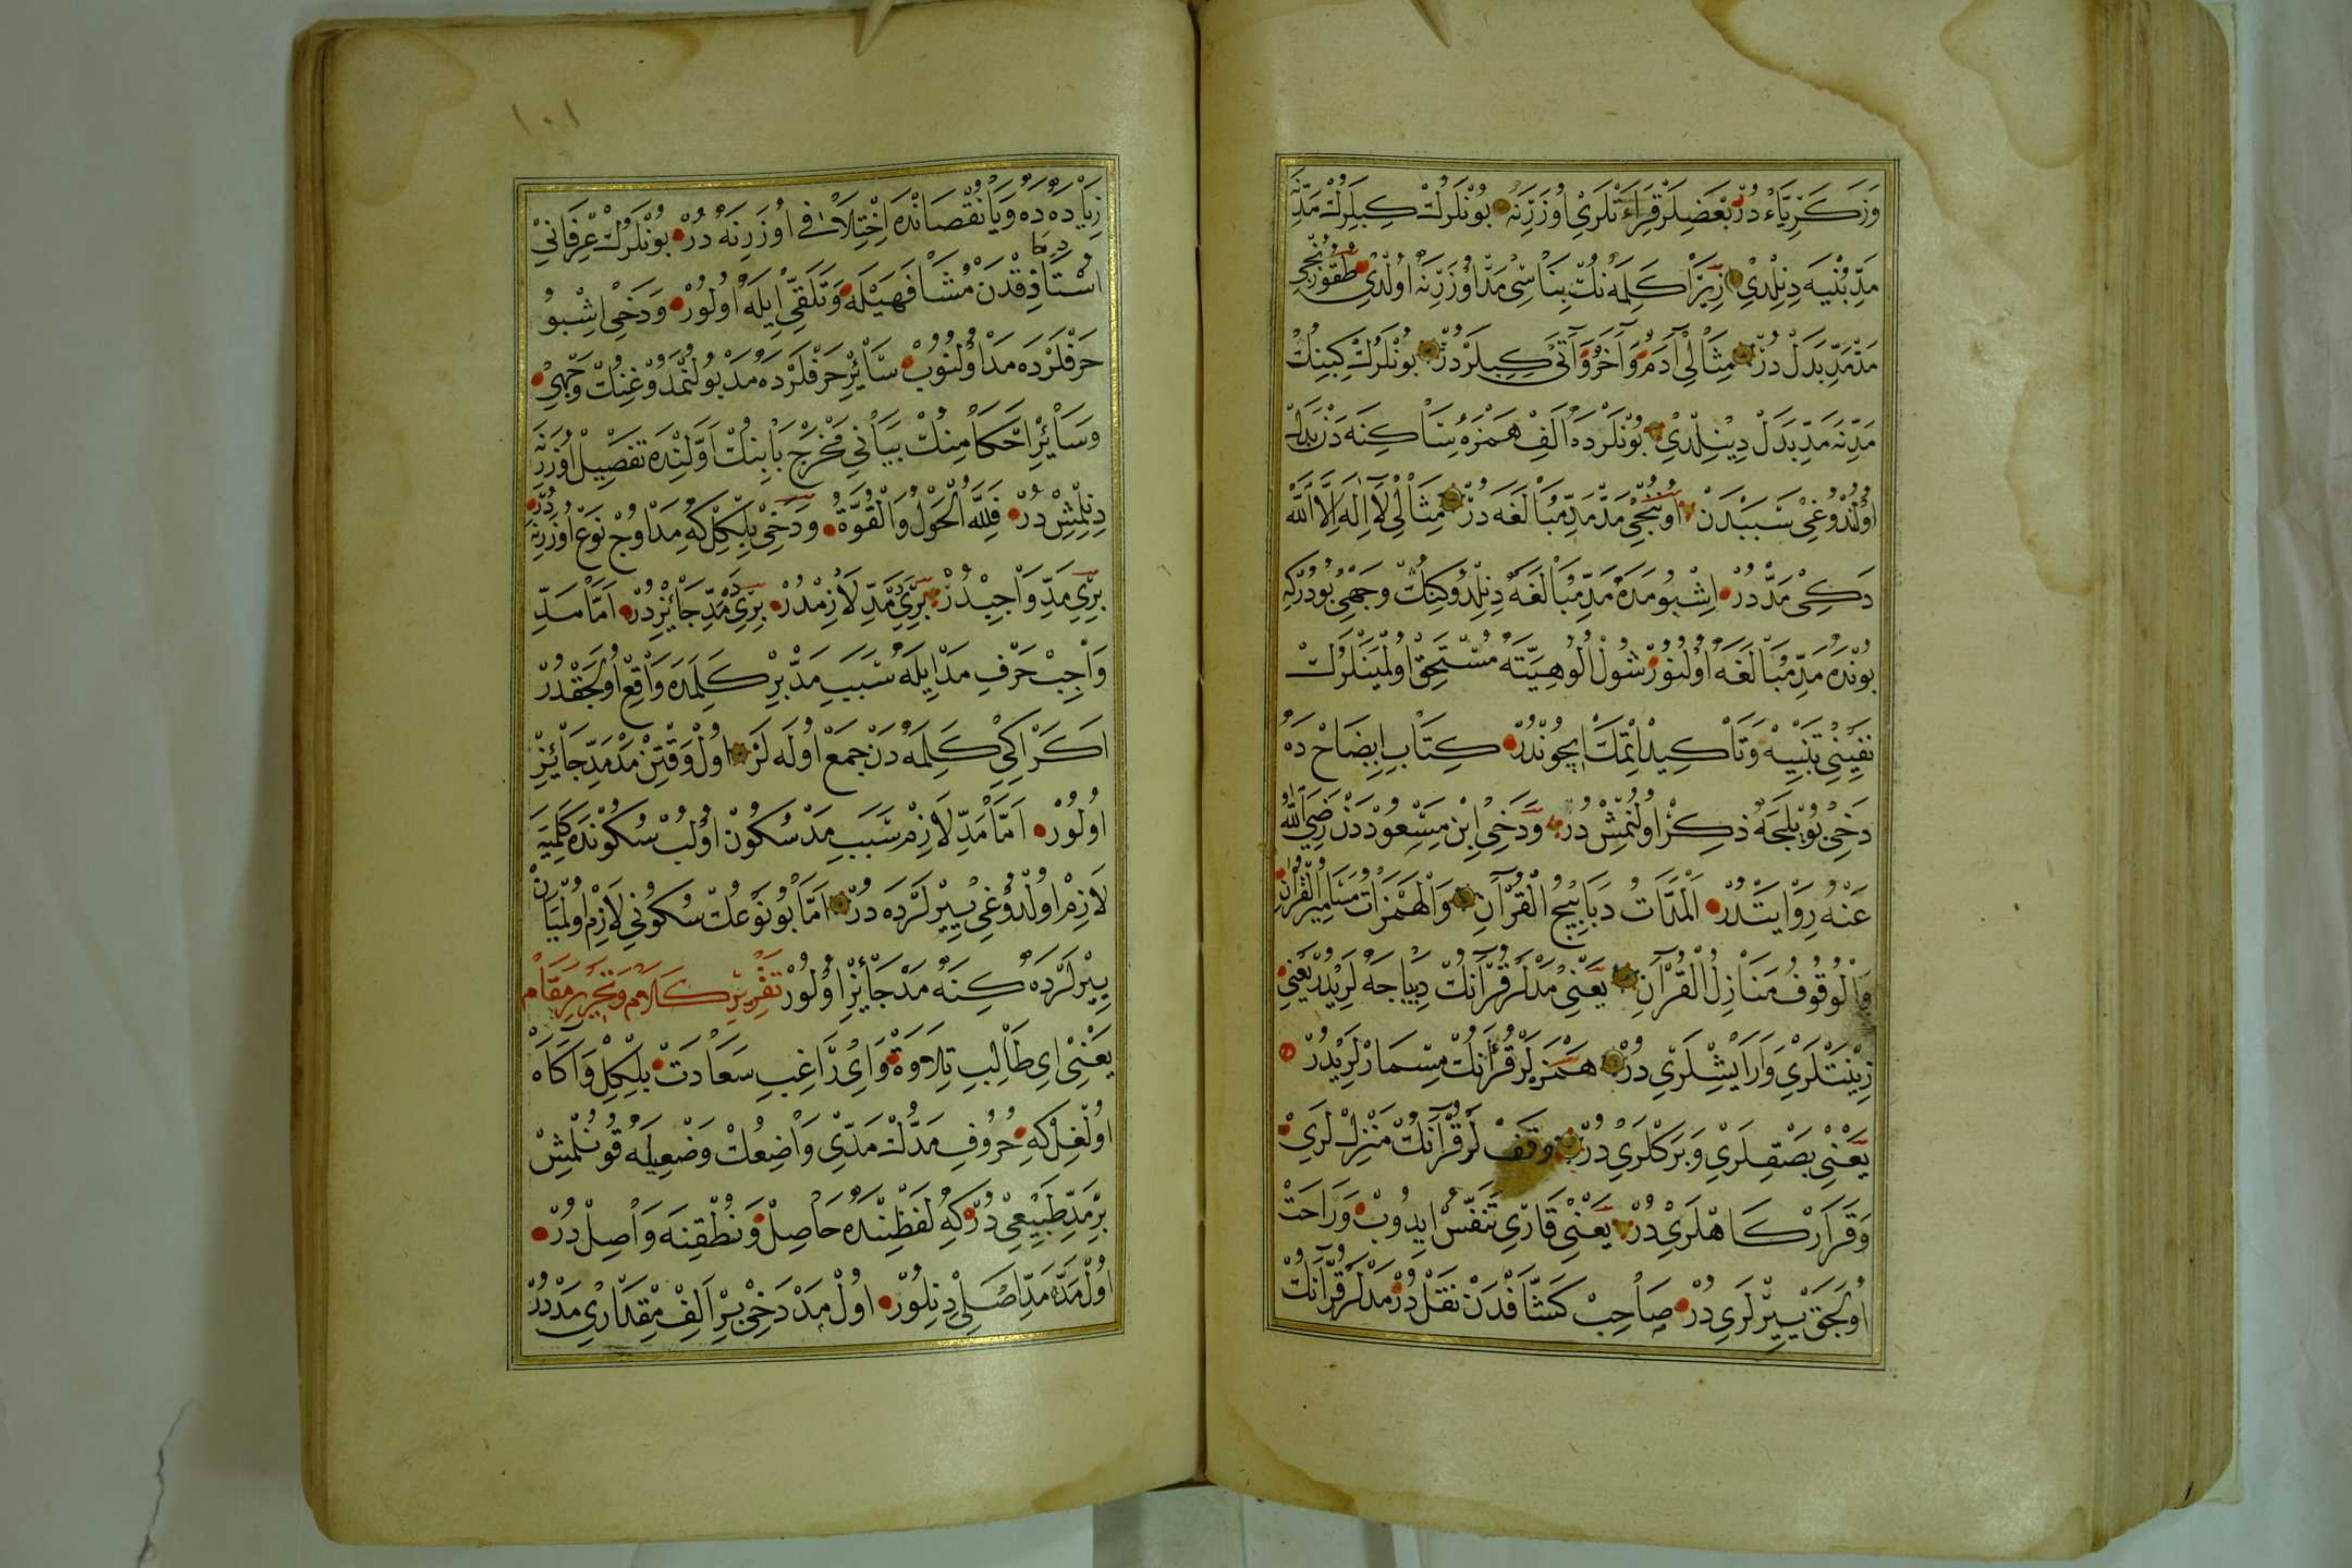 وَزَكَرِيَّاءُ دُرْ بَعْضِلَرْ قِرَاءَتْلَرِي اُوزَرِنَه بُونْلَرُكْ كِبِيلَرُكْ مَدِّنَه
مَدِّ بُنْيَه دِنِلْدِي زِيرَا كَلِمَه نُكْ بِنَاسِي مَدّ اُوزَرِنَه اُولْدِي طُقُوزُنْجِي
مَدْ مَدِّ بَدَلْ دُرْ مِثَالِي آدَمُ وَآخَرُ وَآتَى كِبِيلَرْ دُرْ بُونْلَرُكْ كِبِينِكْ
مَدِّنَه مَدِّ بَدَلْ دِيْنِلْدِي بُونْلَرْدَه اَلِفْ هَمْزَهٔ سَاكِنَه دَنْ بَدَلْ
اُولْدُوغِي سَبَبْدَنْ اُونُنْجِي مَدّ مَدِّ مُبَالَغَه دُرْ مِثَالِي لَآ اِلٰهَ اِلَّا اللّٰه
دَكِي مَدّ دُرْ اِشْبُو مَدَه مَدِّ مُبَالَغَه دِنِلْدُوكِنُكْ وَجْهِي بُودُرْكِه
بُونْدَه مَدِّ مُبَالَغَه اُولُنُورْ شُولْ اُلُوهِيَّتَه مُسْتَحِقّ اُولْمَيَنْلَرُكْ
نَفْيِنِي تَنْبِيهْ وَتَأْكِيدْ اِتْمَكْ اِيچُونْدُرْ كِتَابِ اِيضَاحْ دَه
دَخِي بُويْلَجَه ذِكِرْ اُولُنْمِشْ دُرْ وَدَخِي اِبْنِ مَسْعُودْدَنْ رَضِيَ اللّٰهُ
عَنْهُ رِوَايَتْدُرْ اَلْمَدَّاتُ دَبَابِيجُ الْقُرْآنِ وَالْهَمَزَاتُ مَسَامِيرُ الْقُرْآنِ
وَالْوُقُوفُ مَنَازِلُ الْقُرْآنِ يَعْنِي مَدْلَرْ قُرْآنُكْ دِيبَاجَه لَرِيدُرْ يَعْنِي
زِينَتْلَرِي وَارَايِشْلَرِي دُرْ هَمْزَه لَرْ قُرْآنُكْ مِسْمَارْلَرِيدُرْ
يَعْنِي بَصْقِلَرِي وَبَرَكْلَرِي دُرْ وَقَفْ لَرْ قُرْآنُكْ مَنْزِلْ لَرِي
وَقَرَارْ كَاهْلَرِي دُرْ يَعْنِي قَارِي تَنَفُّسْ اِيدُوبْ وَرَاحَتْ
اُولَجَقْ يِيرْلَرِي دُرْ صَاحِبْ كَشَّافْدَنْ نَقْلْ دُرْ مَدْلَرْ قُرْآنُكْ
١٠١
زِيَادَه دَه وَيَا نُقْصَانْدَه اِخْتِلَافْ اُوزَرِنَه دُرْ بُونْلَرُكْ عِرْفَانِي
اُسْتَاذِقْدَنْ مُشَافَهَيْلَه وَتَلَقِّي اِيلَه اُولُورْ وَدَخِي اِشْبُو
حَرْفْلَرْدَه مَدْ اُولُنُوبْ سَائِرْ حَرْفْلَرْدَه مَدْ بُولُنْمَدُوغِنُكْ وَجْهِي
وَسَائِرْ اَحْكَامِنُكْ بَيَانِي مَخْرَجْ بَابِنُكْ اَوَّلِنْدَه تَفْصِيلْ اُوزَرِنَه
دِنِلْمِشْ دُرْ فَلِلّٰهِ الْحَوْلُ وَالْقُوَّةُ وَدَخِي بِلْكِلْ كِه مَدْ اُوچْ نَوْعْ اُوزَرِنَه دُرْ
بِرِي مَدِّ وَاجِبْدُرْ بِرِي مَدِّ لَازِمْدُرْ بِرِي مَدِّ جَائِزْ دُرْ اَمَّا مَدِّ
وَاجِبْ حَرْفِ مَدْ اِيلَه سَبَبِ مَدْ بِرْ كَلِمَدَه وَاقِعْ اُولَجَقْدُرْ
اَكَرْ اِكِي كَلِمَه دَنْ جَمْعْ اُولَه لَرْ اُولْ وَقْتِنْ مَدْ مَدِّ جَائِزْ
اُولُورْ اَمَّا مَدِّ لَازِمْ سَبَبِ مَدْ سُكُونْ اُولُبْ سُكُونْدَه كَلِمَيَه
لَازِمْ اُولْدُوغِي يِيرْلَرْدَه دُرْ اَمَّا بُو نَوْعُكْ سُكُونِي لَازِمْ اُولْمَيَانْ
يِيرْلَرْدَه كِنَه مَدْ جَائِزْ اُولُورْ تَقْرِيرِ كَلَامْ وَتَحْرِيرِ مَقَامْ
يَعْنِي اِي طَالِبِ تِلَاوَةْ وَاِي رَاغِبِ سَعَادَتْ بِلْكِلْ وَآكَاهْ
اُولْغِلْ كِه حُرُوفِ مَدُّكْ مَدِّي وَاضِعُكْ وَضْعِيلَه قُونُلْمِشْ
بِرْ مَدِّ طَبِيعِي دُرْكِه لَفْظِنْدَه حَاصِلْ وَنُطْقِنَه وَاصِلْ دُرْ
اُولْ مَدَّه مَدِّ اَصْلِي دِنِلُورْ اُولْ مَدْ دَخِي بِرْ اَلِفْ مِقْدَارِي مَدْدُرْ